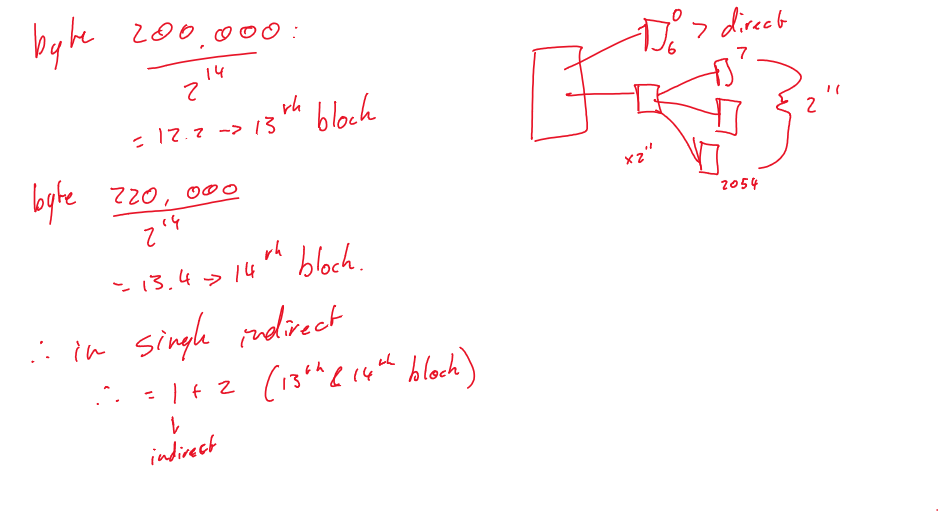 byte 200,000:
2^14
= 12.2 → 13th block
byte 220,000
2^14
= 13.4 → 14th block.
∴ in single indirect
∴ = 1 + 2 (13th & 14th block)
indirect
0
6 > direct
7
2^11
x2^11
2054